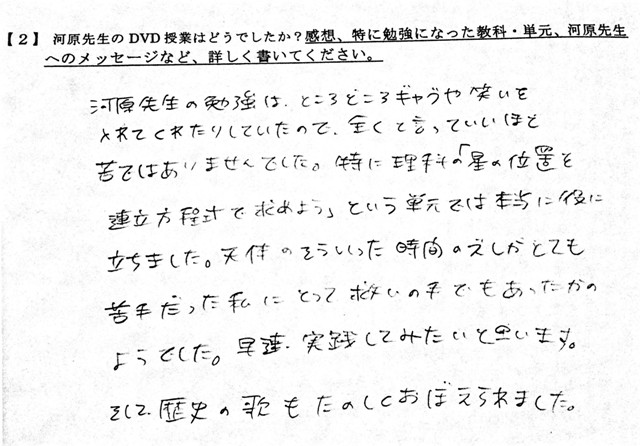 【２】 河原先生のDVD授業はどうでしたか？感想、特に勉強になった教科・単元、河原先生
へのメッセージなど、詳しく書いてください。
河原先生の勉強は、ところどころギャグや笑いを
入れてくれたりしていたので、全くと言っていいほど
苦ではありませんでした。特に理科の「星の位置を
連立方程式で求めよう」という単元では本当に役に
立ちました。天体のそういった時間の
苦手だった私にとって救いの手でもあったかの
ようでした。早速、実践してみたいと思います。
そして、歴史の歌もたのしくおぼえられました。